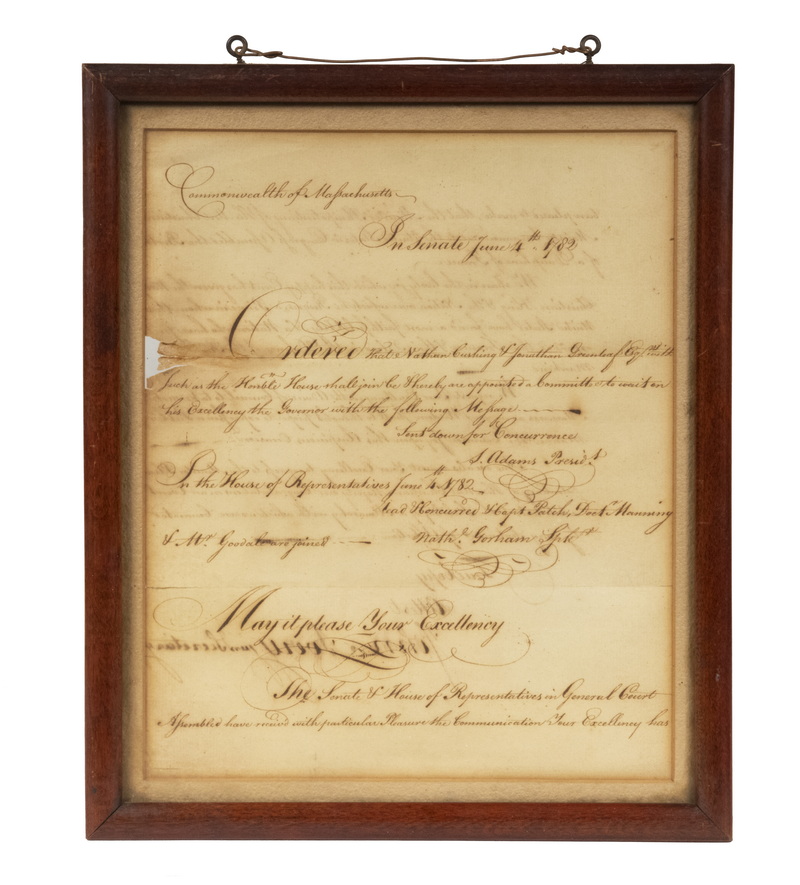 Commonwealth of Massachusetts
In Senate June 4th 1782
Ordered that Nathan Cushing & Jonathan Greenleaf Esqrs with
such as the Honble House shall join be & hereby are appointed a Committe to wait on
his Excellency the Governor with the following Message
Sent down for Concurrence
S. Adams Presidt
In the House of Representatives June 4 1782
Read & Concurred & Capt Patch, Doctr Manning
& Mr Goodale are joined
Nathl Gorham Spkr
May it please Your Excellency
The Senate & House of Representatives in General Court
Assembled have receivd with particular Pleasure the Communication Your Excellency has